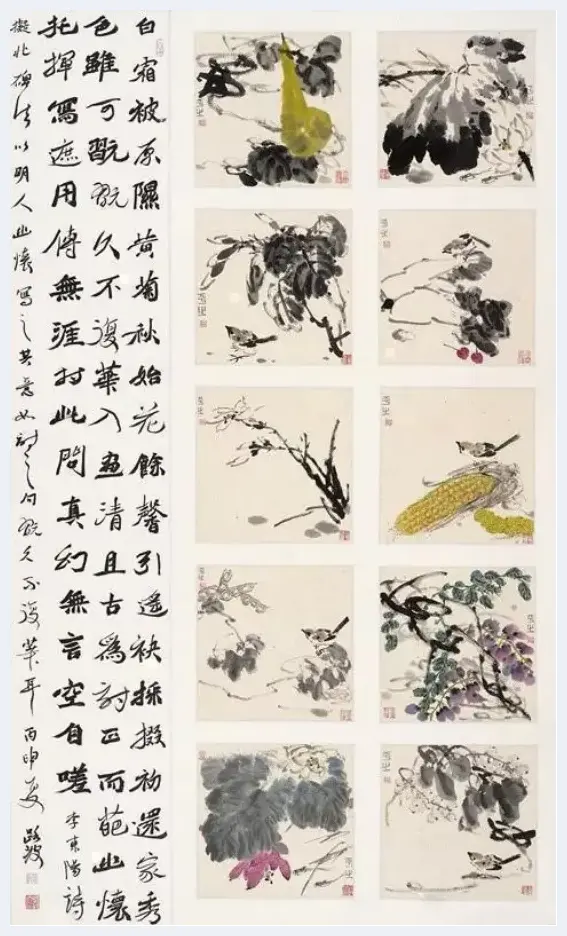 白霜被原隰黄菊秋始花餘馨引遥袂採掇初還家秀
色雖可翫翫久不復華入畫清且古為詩正而葩幽懷
托揮寫遮用傳無涯对此問真幻無言空自嗟 李東陽詩
擬北碑法以明人幽懷寫之其意如詩之句翫久不復華耳 丙申夏